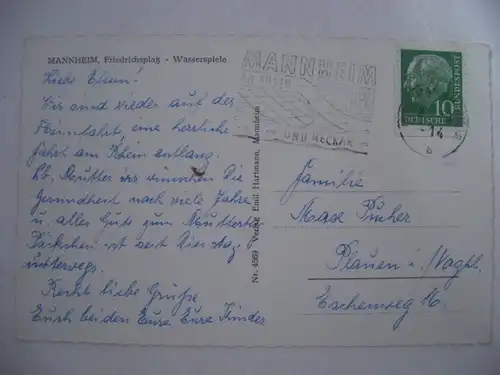 MANNHEIM, Friedrichsplatz - Wasserspiele
Liebe Eltern!
Wir sind wieder auf der
Heimfahrt, eine herrliche
Fahrt am Rhein entlang.
Lb. Mutter wir wünschen Dir
Gesundheit noch viele Jahre
u. alles Gute zum Muttertag
Päckchen ist seit Dienstag
unterwegs.
Recht liebe Grüße
Euch beiden Eure Kinder
Nr. 4069 Verlag Emil Hartmann, Mannheim
MANNHEIM
AN RHEIN
UND NECKAR
10
DEUTSCHE
BUNDESPOST
-14
b
Familie
Pucher
Plauen i./Vogtl.
Eschenweg 16